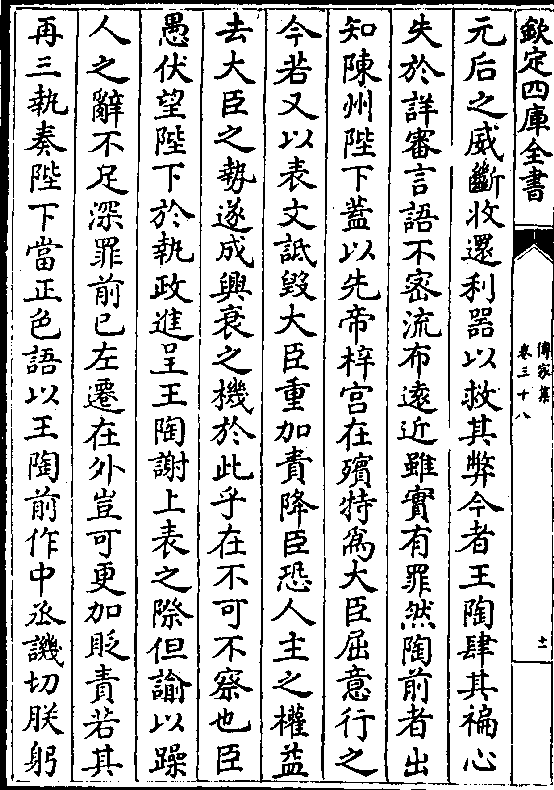 欽定四庫全書
傳家集
卷三十八
十一
元后之威斷收還利器以救其弊今者王陶肆其褊心
失於詳審言語不密流布遠近雖實有罪然陶前者出
知陳州陛下蓋以先帝梓宫在殯特為大臣屈意行之
今若又以表文詆毀大臣重加責降臣恐人主之權益
去大臣之勢遂成興衰之機於此乎在不可不察也臣
愚伏望陛下於執政進呈王陶謝上表之際但諭以躁
人之辭不足深罪前已左遷在外豈可更加貶責若其
再三執奏陛下當正色語以王陶前作中丞譏切朕躬